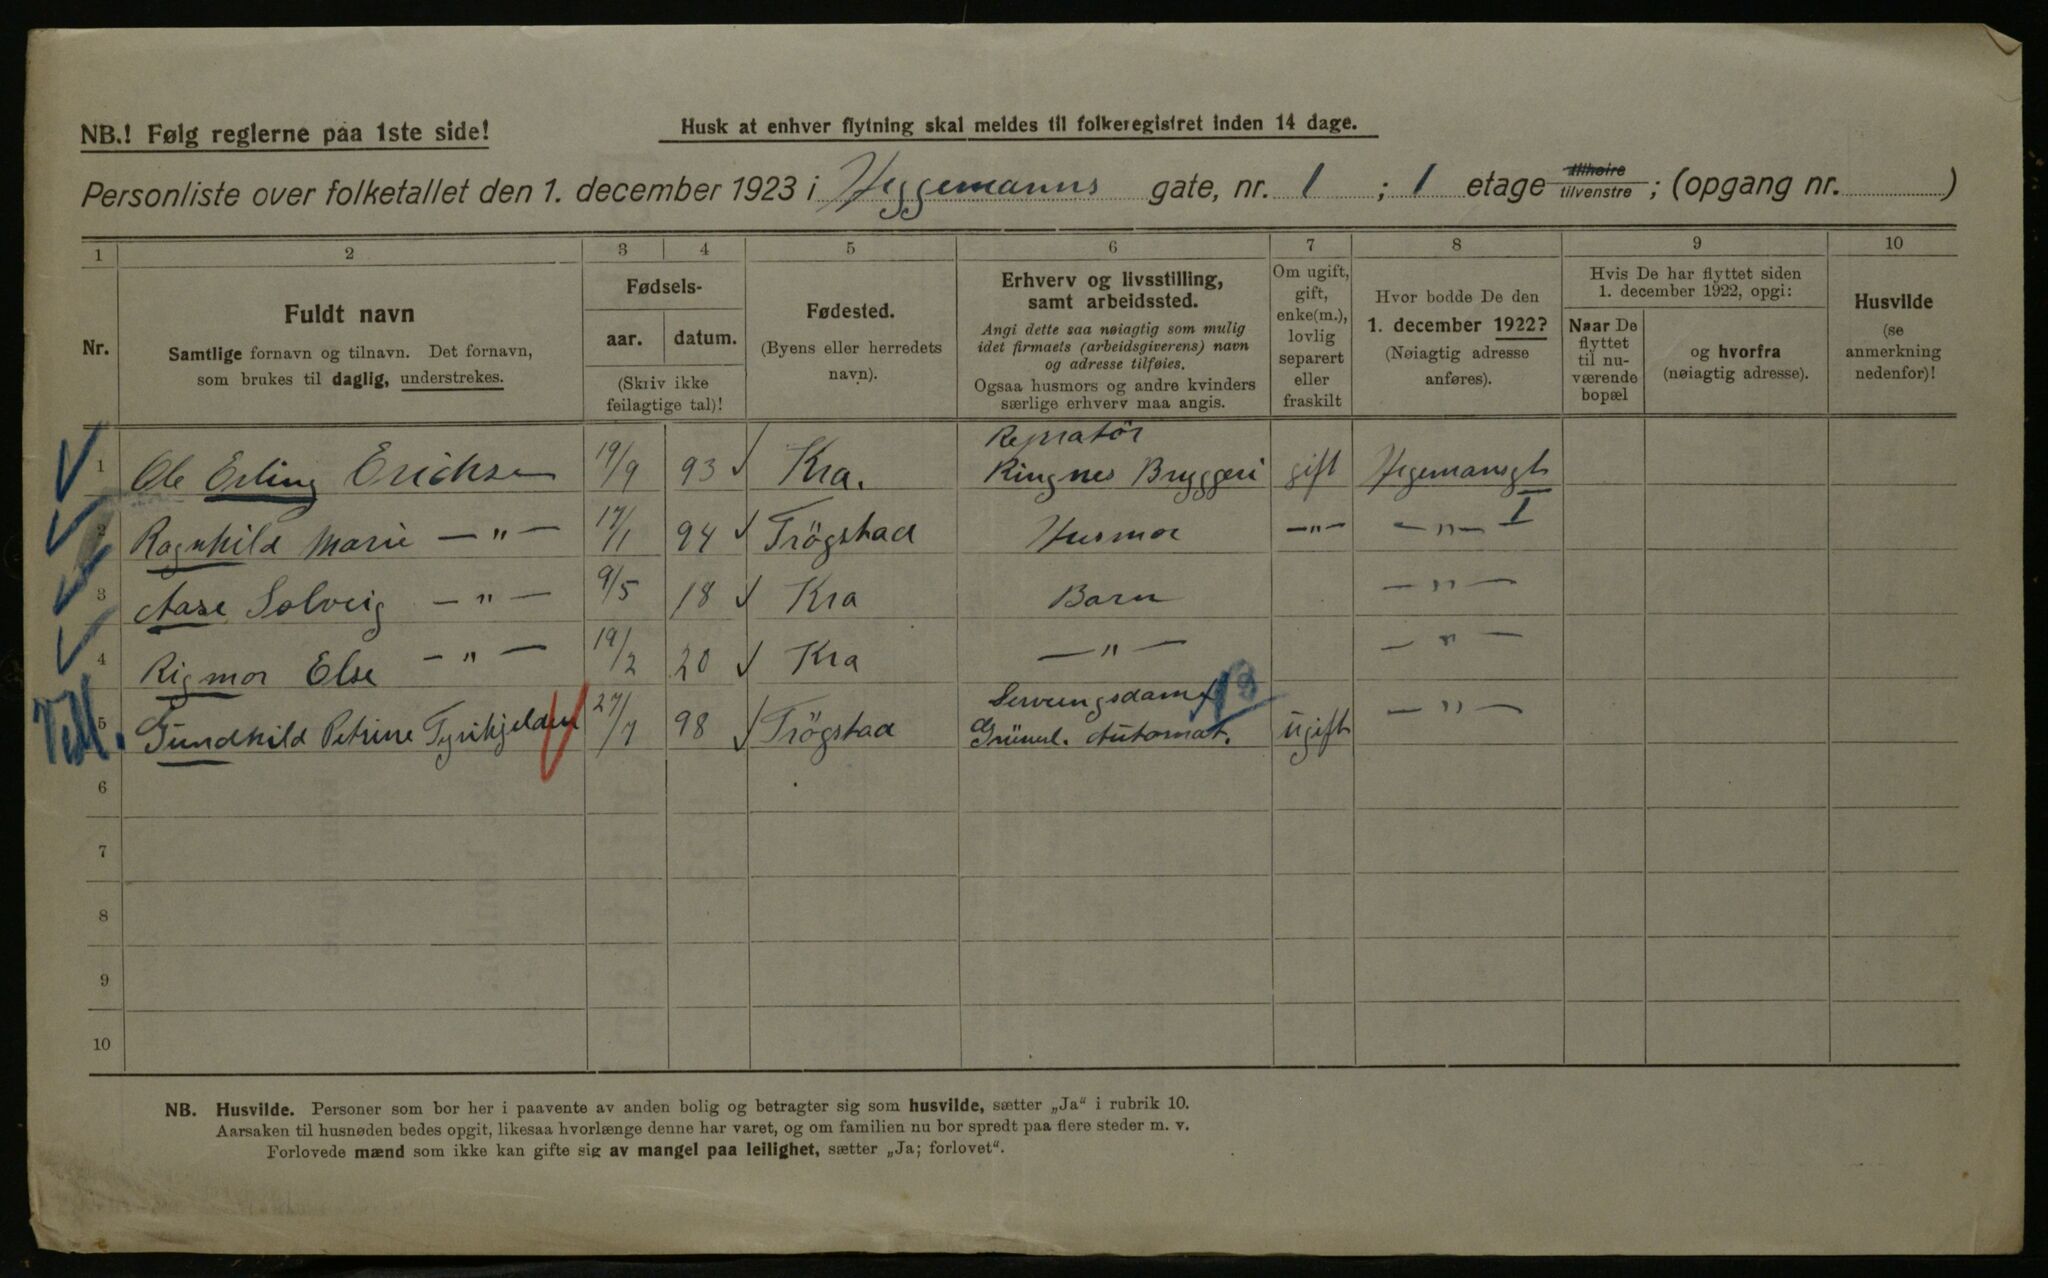 NB.! Følg reglerne paa 1ste side!
Husk at enhver flytning skal meldes til folkeregistret inden 14 dage.
Personliste over folketallet den 1. december 1923 i Heggemanns gate, nr. 1 ; 1 etage tilhøire tilvenstre ; (opgang nr. )
1 2 3 4 5 6 7 8 9 10
Nr.
Fuldt navn
Samtlige fornavn og tilnavn. Det fornavn,
som brukes til daglig, understrekes.
Fødsels-
aar. datum.
(Skriv ikke
feilagtige tal)!
Fødested.
(Byens eller herredets
navn).
Erhverv og livsstilling,
samt arbeidssted.
Angi dette saa nøiagtig som mulig
idet firmaets (arbeidsgiverens) navn
og adresse tilføies.
Ogsaa husmors og andre kvinders
særlige erhverv maa angis.
Om ugift,
gift,
enke(m.),
lovlig
separert
eller
fraskilt
Hvor bodde De den
1. december 1922?
(Nøiagtig adresse
anføres).
Hvis De har flyttet siden
1. december 1922, opgi:
Naar De
flyttet
til nu-
værende
bopæl
og hvorfra
(nøiagtig adresse).
Husvilde
(se
anmerkning
nedenfor)!
1 Ole Erling Erichsen 19/9 93 Kra. Repratör Ringnes Bryggeri gift Hegemansgt 1
2 Ragnhild Marie — " — 17/1 94 Trögstad Husmor — " — — " —
3 Aase Solveig — " — 9/5 18 Kra Barn — " —
4 Rigmor Else — " — 19/2 20 Kra — " — — " —
Till. 5 Gundhild Petrine Tyrihjelden 27/7 98 Trögstad Serveringsdame Grünerl. Automat. ugift — " —
6
7
8
9
10
NB. Husvilde. Personer som bor her i paavente av anden bolig og betragter sig som husvilde, sætter „Ja" i rubrik 10.
Aarsaken til husnøden bedes opgit, likesaa hvorlænge denne har varet, og om familien nu bor spredt paa flere steder m. v.
Forlovede mænd som ikke kan gifte sig av mangel paa leilighet, sætter „Ja; forlovet".